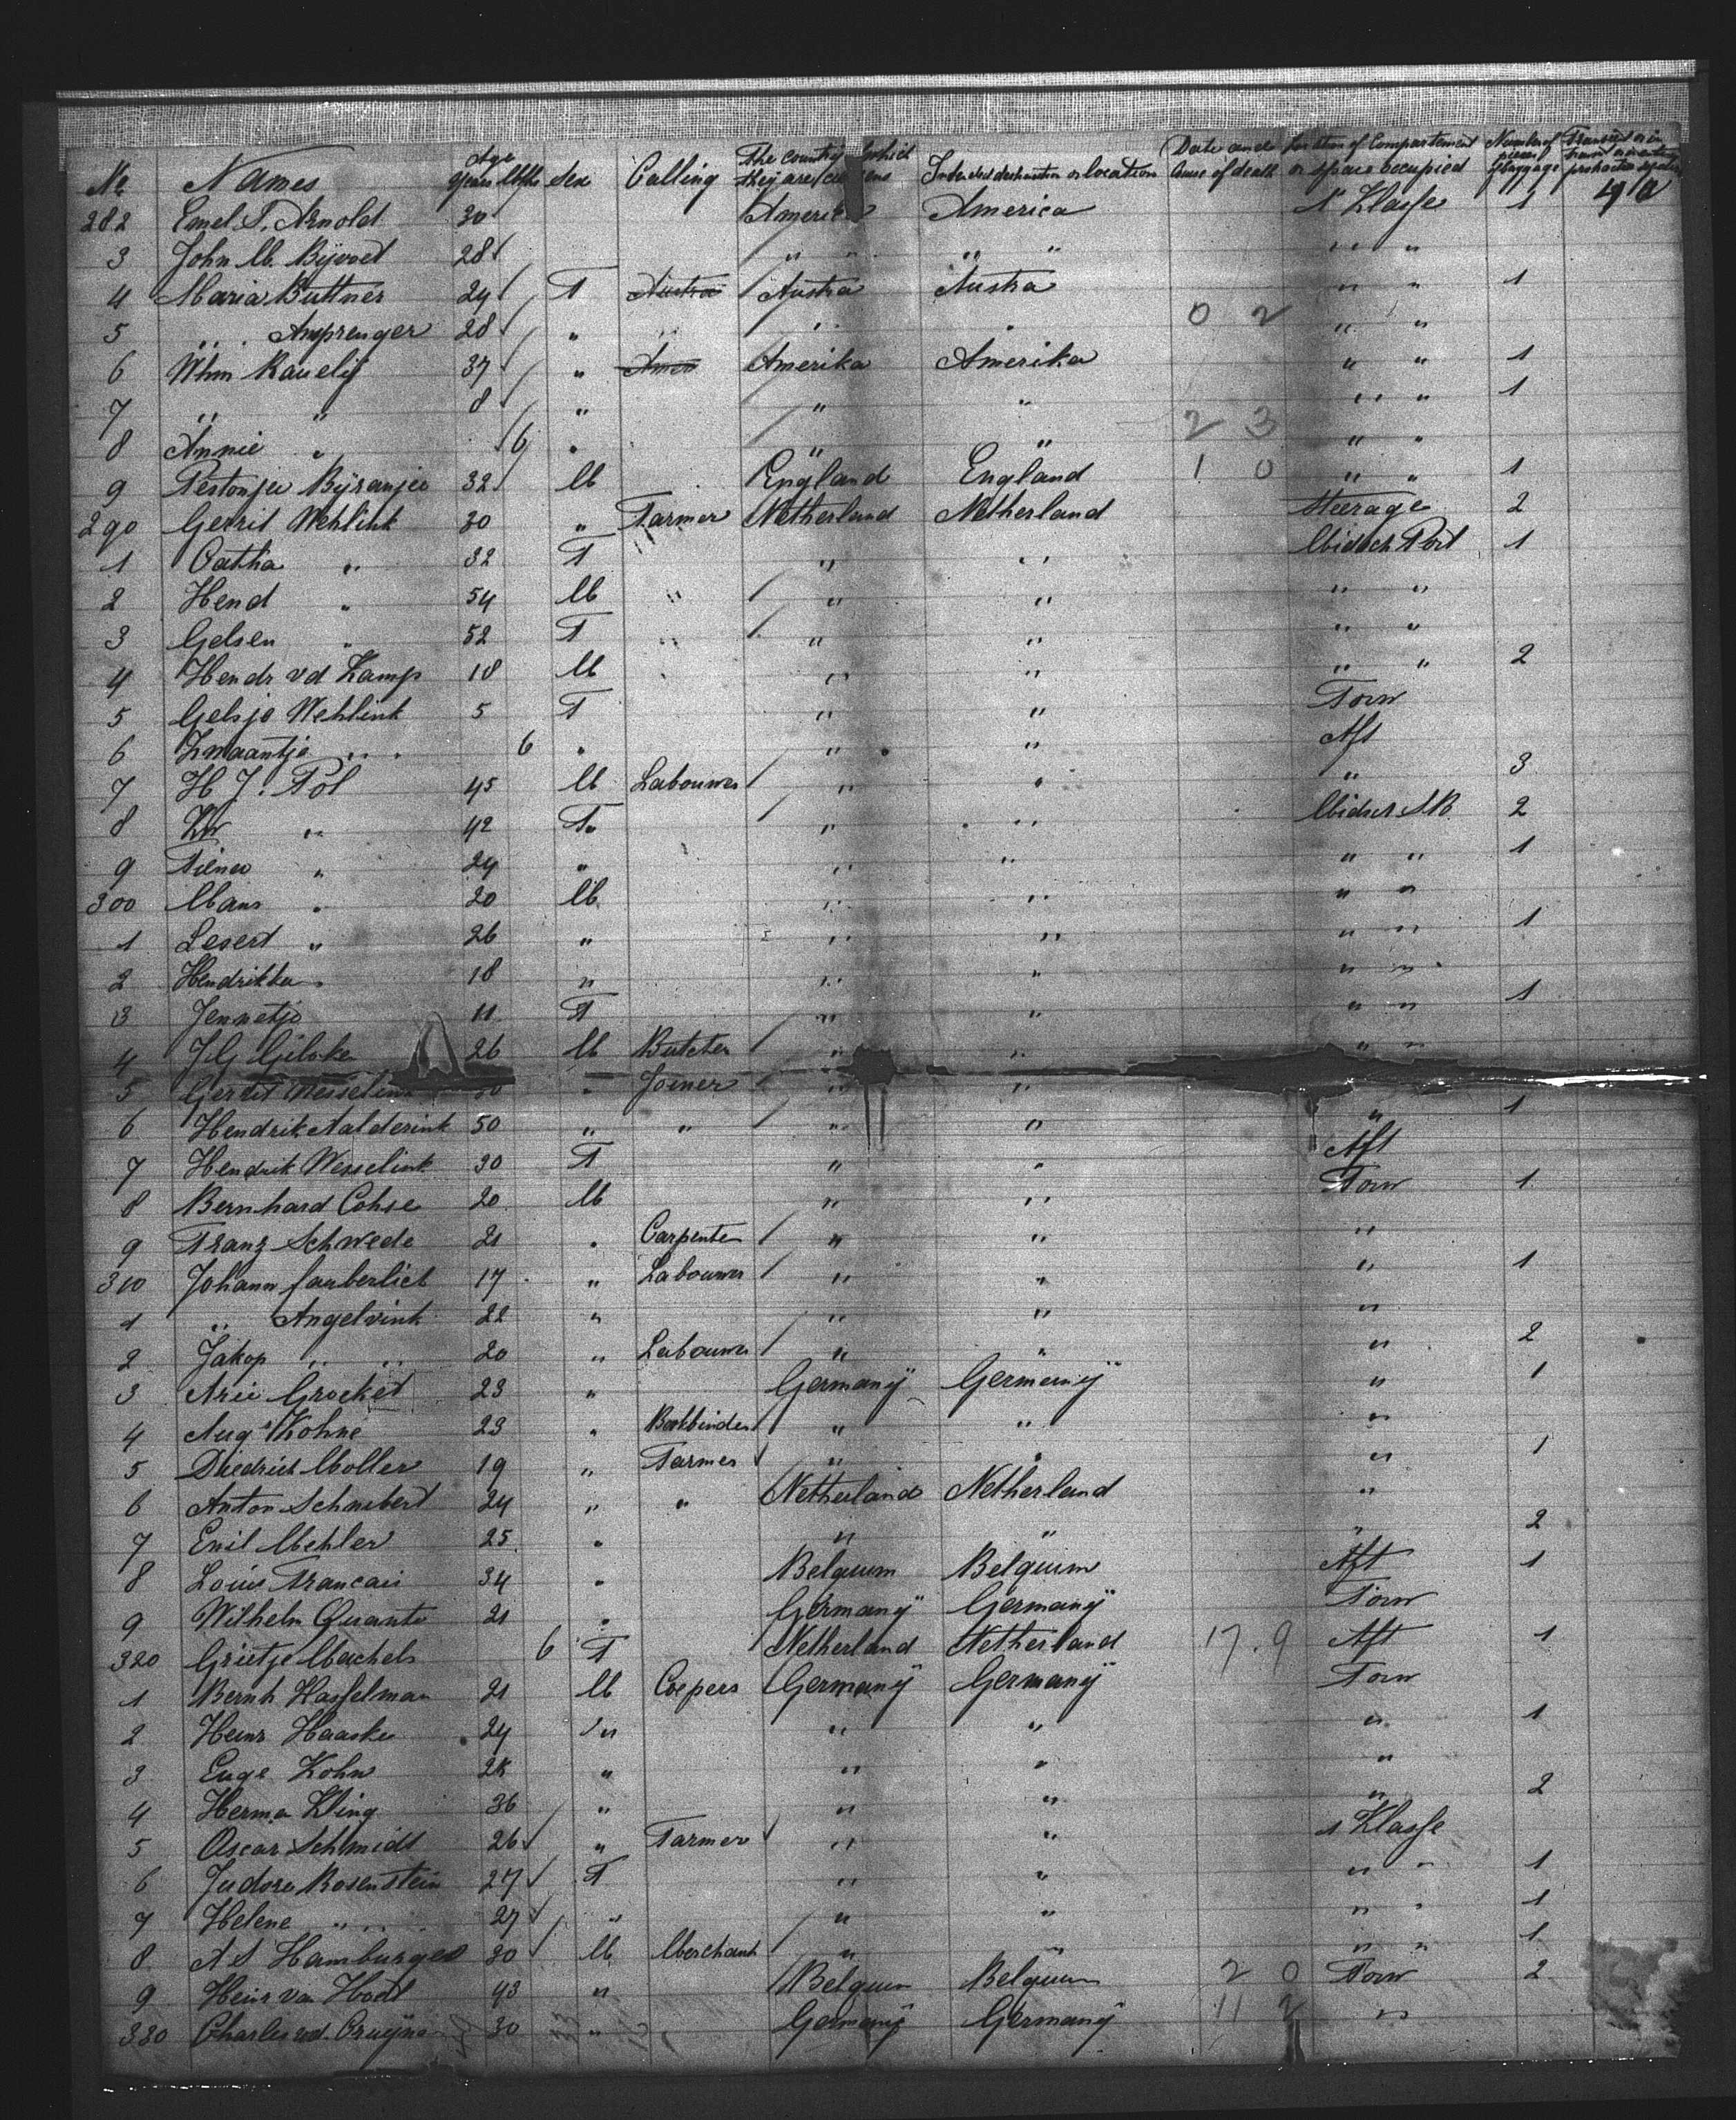 No Names Age Years Mths Sex Calling The country which they are citizens Intended destination or location Date and Cause of death Location of Compartement or space occupied Number of pieces of baggage
282 Emel S. Arnold 30 Amerika America 1 Klasse 1
3 John M. Bÿvoet 28 " " " " " "
4 Maria Buttner 24 F Austra Austra Austra " " 1
5 " Amprenger 28 " " " 0 2 " "
6 Whm 37 " Amer Amerika Amerika " " 1
7 " " 8 " " " " " 1
8 Annie " 6 " " " 2 3 " "
9 Pestonjee Bÿranjee 32 M England England 1 0 " " 1
290 Gerrit Wehlink 30 " Farmer Netherland Netherland Steerage 2
1 Catha " 32 F " " Midsch Port 1
2 Hend " 54 M " " " " "
3 Gelsen " 52 F " " " " "
4 Hendr vd Kamp 18 M " " " " " 2
5 Gelsje Wehlink 5 F " " Forw
6 Zwaantje " 6 " " " Aft
7 H J. Pol 45 M Labourer " " " 3
8 Zw " 42 F " " Midsch S.B. 2
9 " 24 " " " " " 1
300 Mans " 20 M " " " "
1 " 26 " " " " " 1
2 Hendrikka " 18 " " " " "
3 Jennetje 11 F " " " " 1
4 J G 26 M Butcher " " " "
5 Gerrit Wesselink 30 " Joiner " "
6 Hendrik Nalderink 50 " " " " " 1
7 Hendrik Wesselink 30 F " " Aft
8 Bernhard Cohse 20 M " " Forw 1
9 Franz Schwede 21 " Carpenter " " "
310 Johann 17 " Labourer " " " 1
1 " Angelvink 22 " " " "
2 Jakop " " 20 " Labourer " " " 2
3 Arie Grocket 23 " Germanÿ Germanÿ " 1
4 Aug Kohne 23 " Bookbinder " " "
5 Diedrich Moller 19 " Farmer " " " 1
6 Anton Schubert 24 " " Netherland Netherland "
7 Emil Mehler 25 " " " " 2
8 Louis Francais 34 " Belguim Belguim Aft 1
9 Wilhelm Quante 21 " Germanÿ Germanÿ Forw
320 Grietje Machels 6 F Netherland Netherland 17. 9 Aft 1
1 Bernh Hasselman 21 M Coepers Germanÿ Germanÿ Forw
2 Heinr Haaske 24 " " " " 1
3 Euge Kohn " " " "
4 Herman Kling 36 " " " " 2
5 Oscar Schmidt 26 " Farmer " " 1 Klasse
6 Judore Rosenstein 27 F " " " " 1
7 Helene " 27 " " " " " 1
8 A S Hamburger 30 M Merchant " " " " 1
9 Heinr van Hoot 43 " Belguim Belguim 2 0 Forw 2
330 Charles vd. 30 " Germanÿ Germanÿ 11 2 "